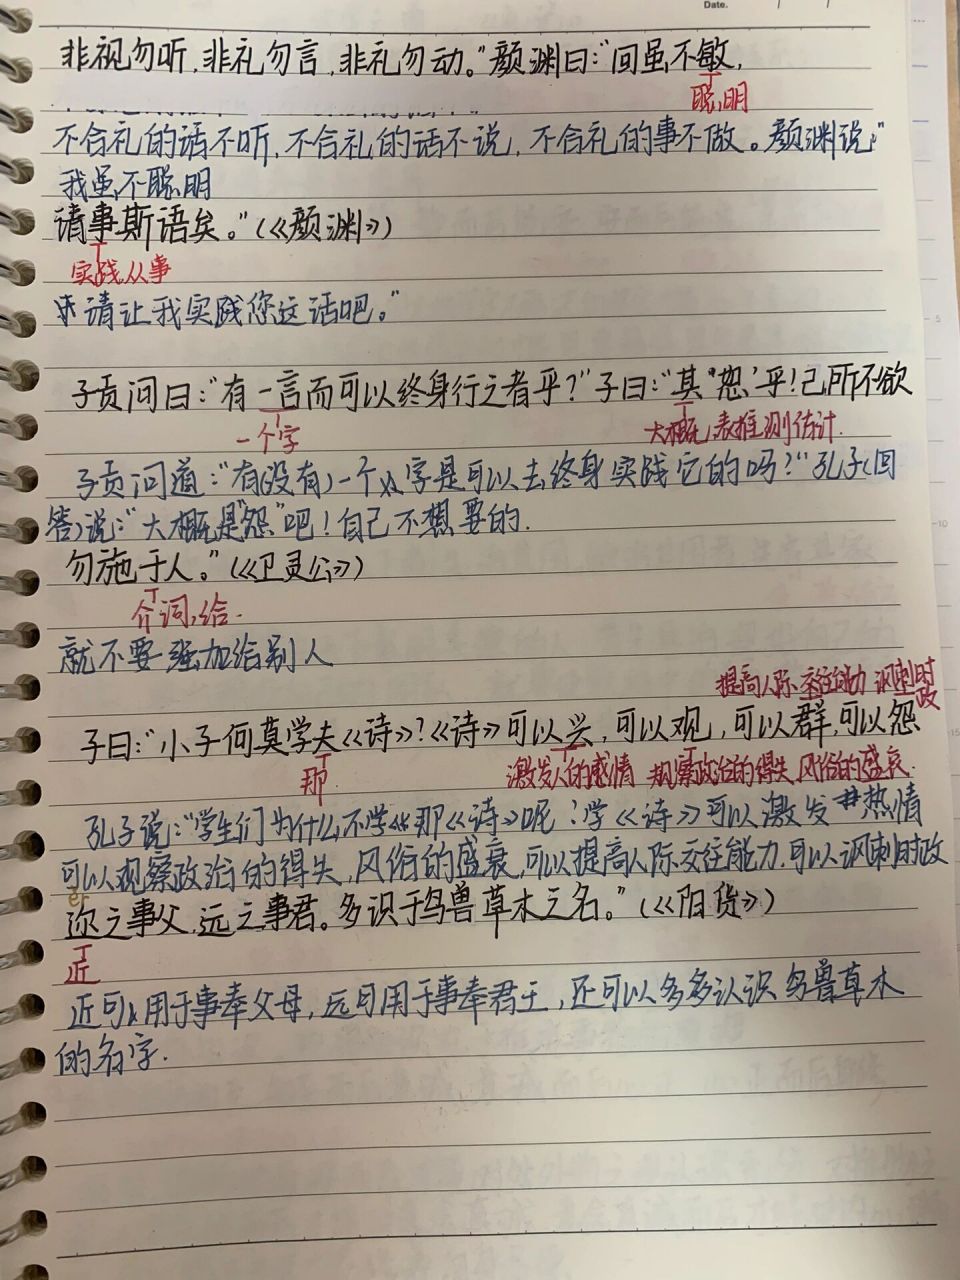 Date.
非视勿听,非礼勿言,非礼勿动。"颜渊曰:"回虽不敏,
聪明
不合礼的话不听,不合礼的话不说,不合礼的事不做。颜渊说:"
我虽不聪明
请事斯语矣。"(《颜渊》)
实践,从事
请让我实践您这话吧。"
子贡问曰:"有一言而可以终身行之者乎?"子曰:"其'恕'乎!己所不欲
一个字
大概,表推测估计.
子贡问道:"有(没有)一个字是可以去终身实践它的吗?"孔子(回
答)说:"大概是"怨"吧!自己不想要的.
勿施于人。"(《卫灵公》)
介词,给.
就不要强加给别人
提高人际交往能力 讽刺时
政
子曰:"小子何莫学夫《诗》?《诗》可以兴,可以观,可以群,可以怨
那.
激发人的感情 观察政治的得失,风俗的盛衰.
孔子说:"学生们为什么不学那《诗》呢?学《诗》可以激发热情
可以观察政治的得失,风俗的盛衰,可以提高人际交往能力.可以讽刺时政
ěr
迩之事父,远之事君。多识于鸟兽草木之名。"(《阳货》)
近
近可以用于事奉父母,远可用于事奉君王,还可以多多认识鸟兽草木
的名字.